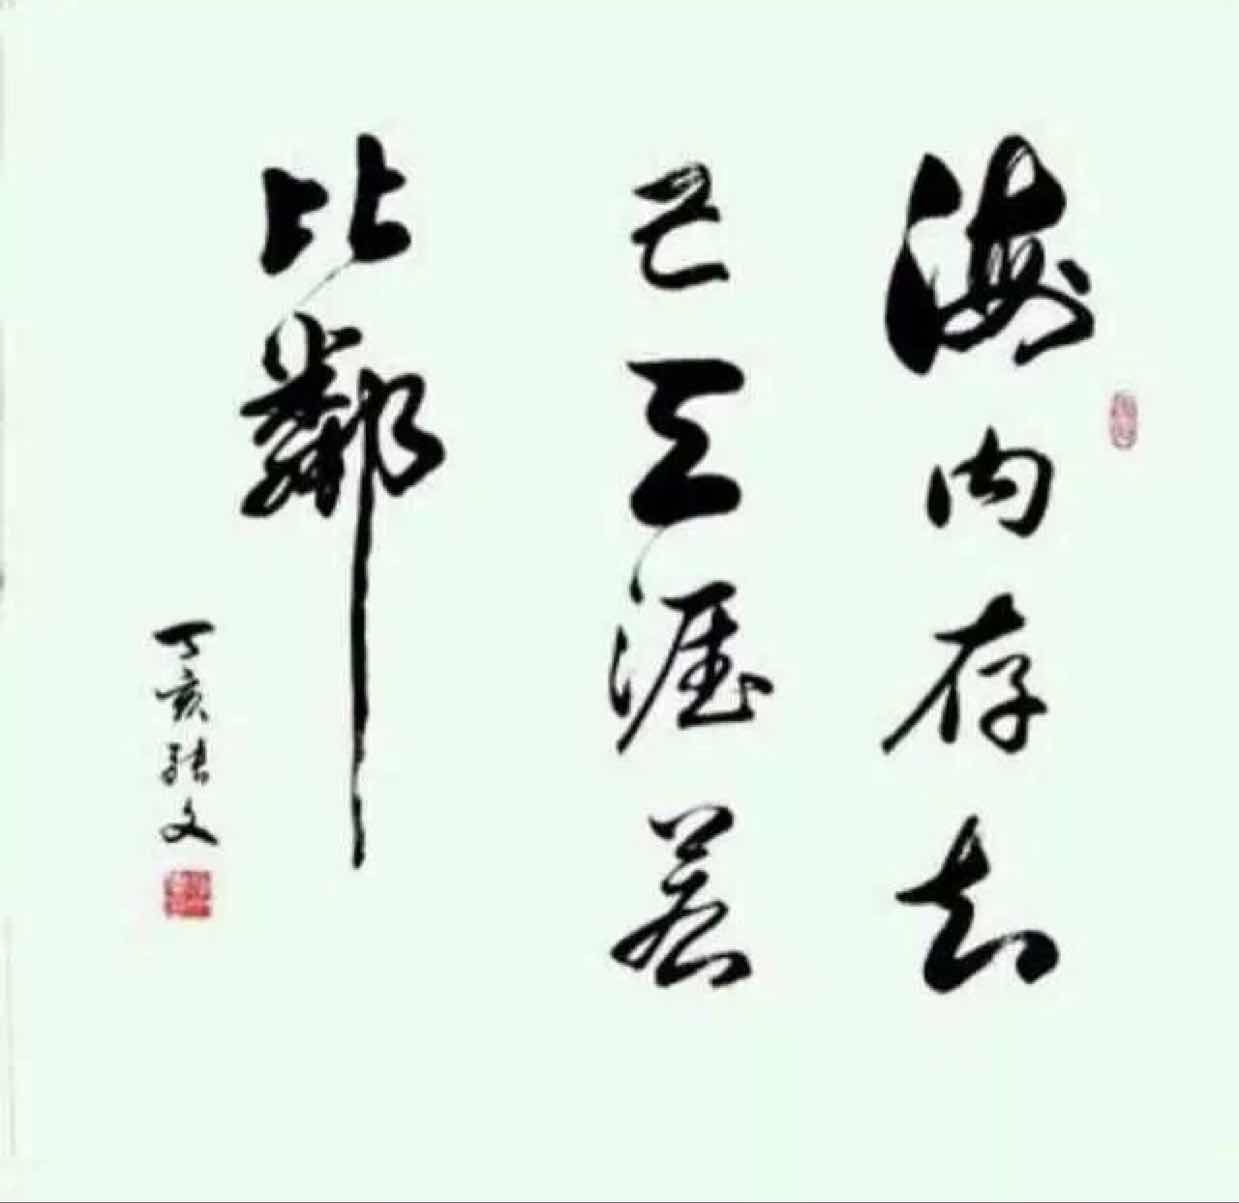 海内存知
己天涯若
比鄰
丁亥张文